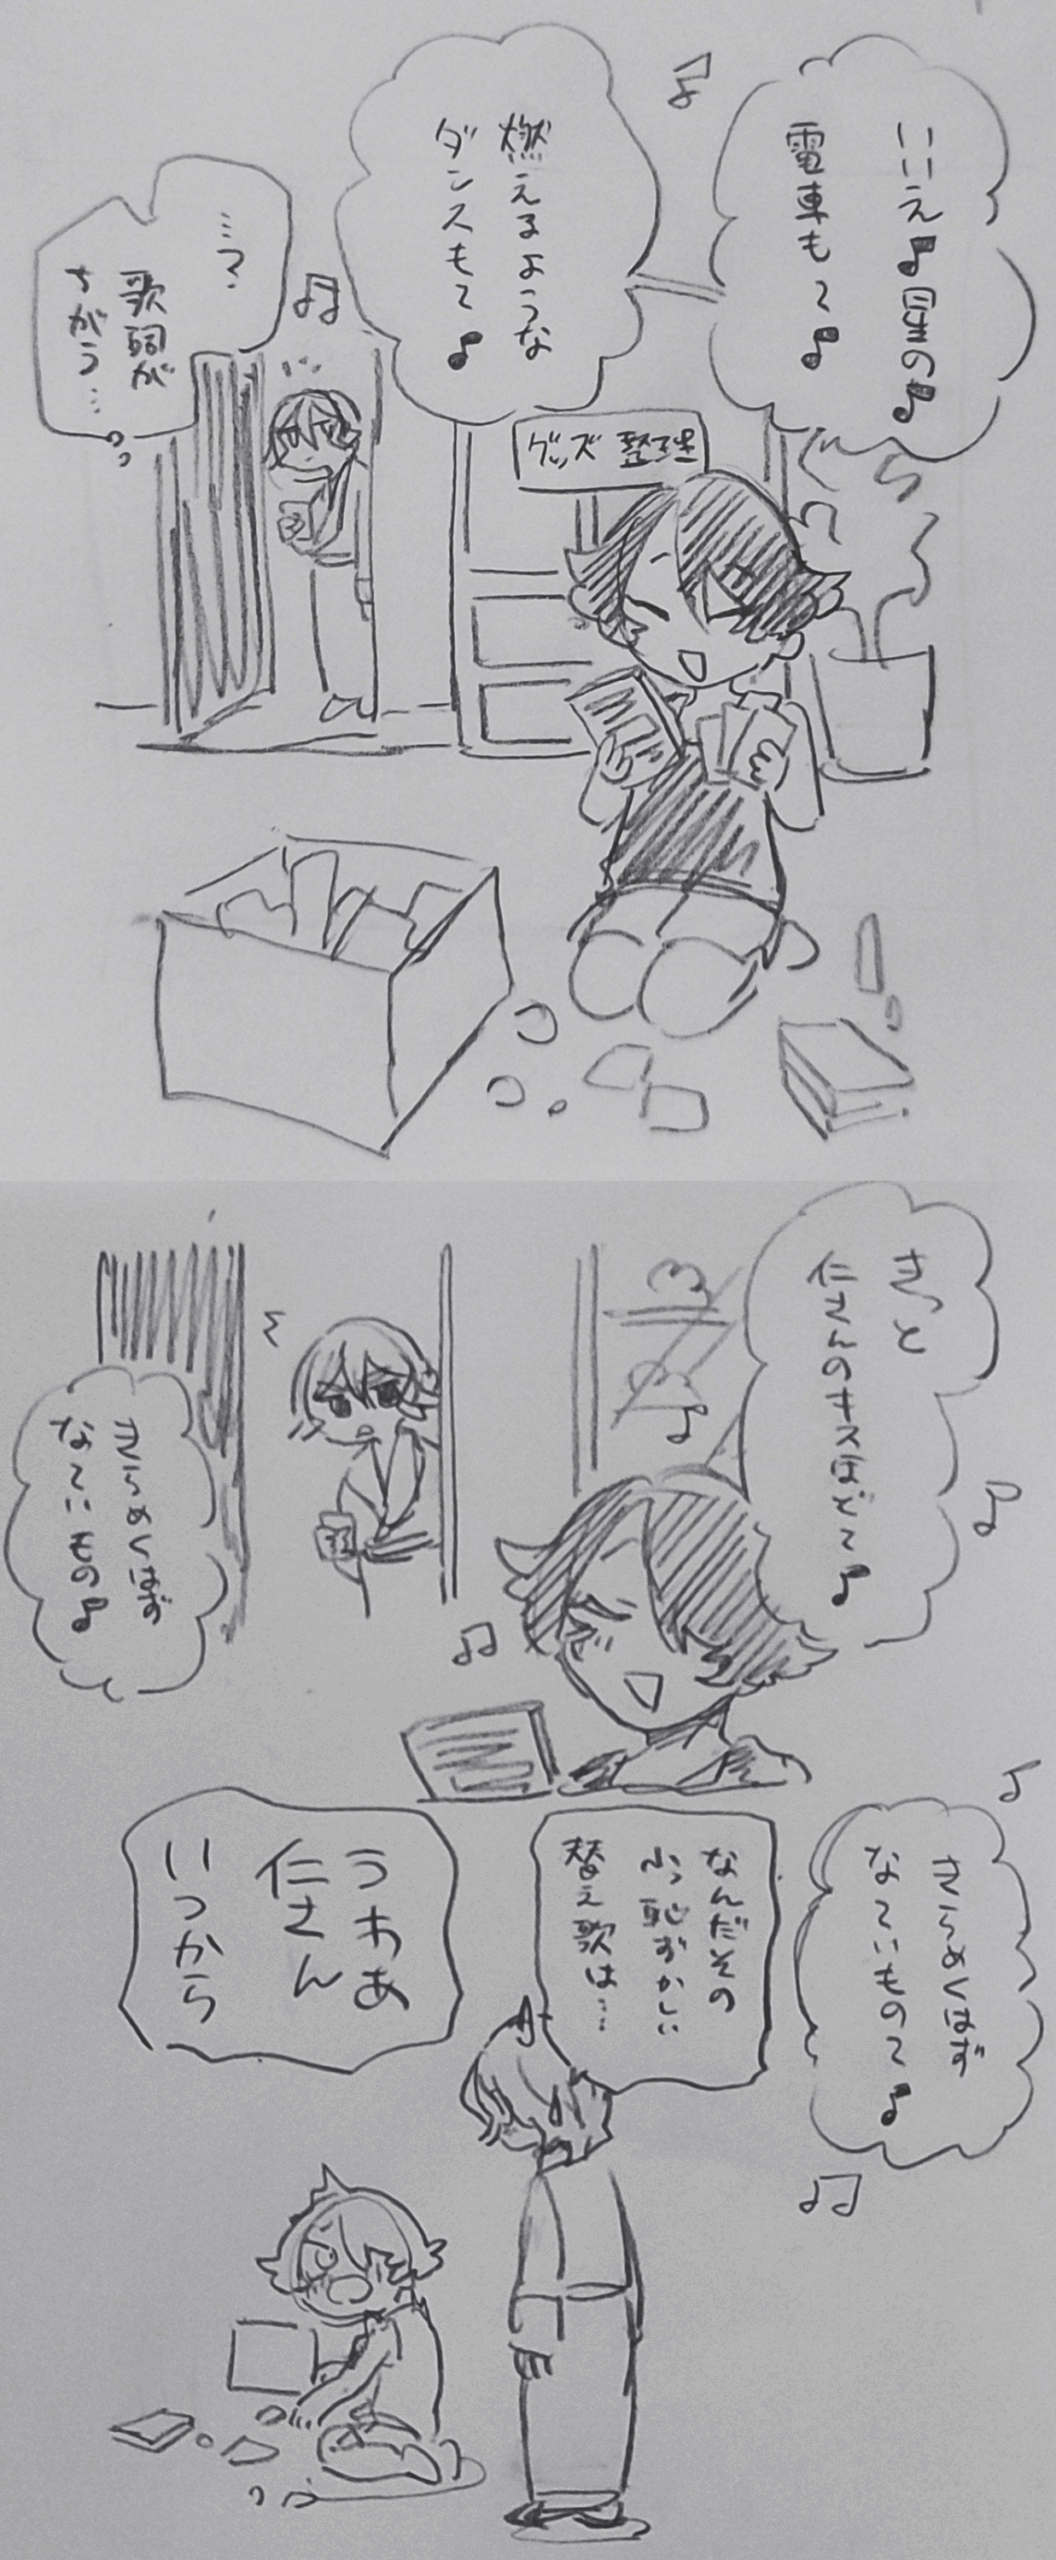 いいえ♪星の♪
電車も〜♪
燃えるような
ダンスも〜♪
…?
歌詞が
ちがう…
グッズ整理
きっと
仁さんのキスほど〜♪
きらめくはず
な〜いもの♪
きらめくはず
な〜いもの〜♪
なんだその
小っ恥ずかしい
替え歌は…
うわあ
仁さん
いつから